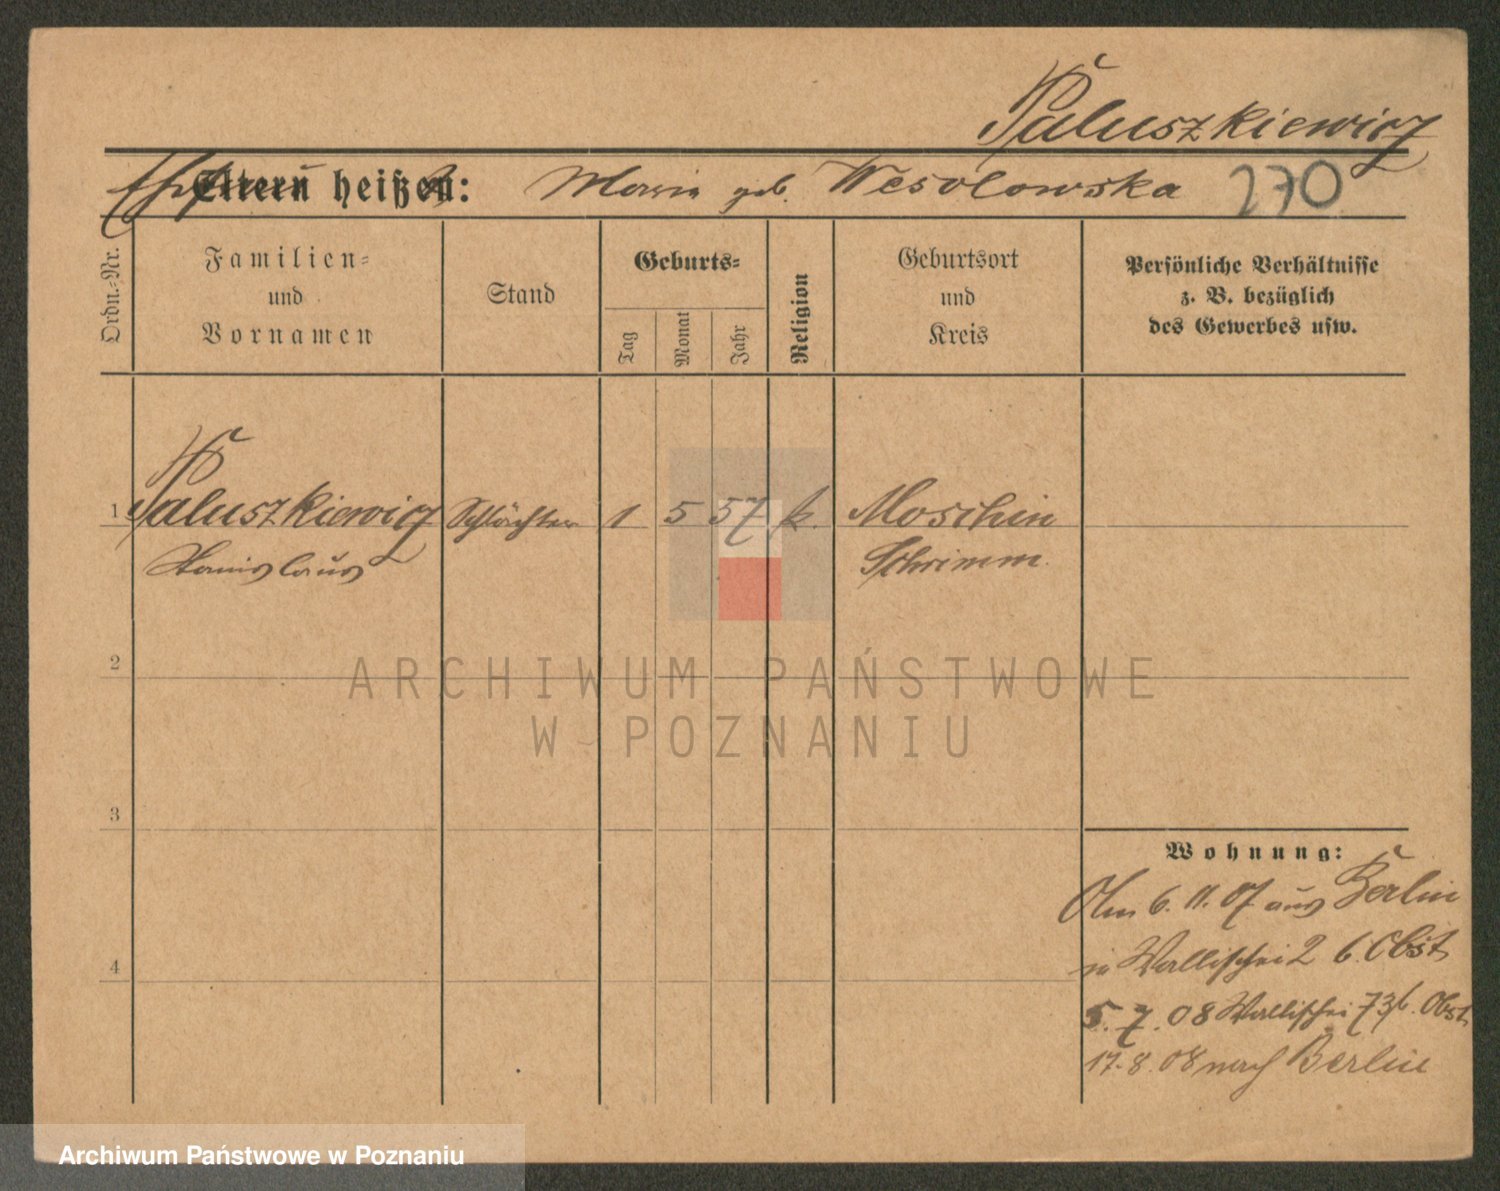 Paluszkiewicz
Ehefrau heißt: Maria geb. Wesolowska 270
Ordn.-Nr.
Familien-
und
Vornamen
Stand
Geburts-
Tag
Monat
Jahr
Religion
Geburtsort
und
Kreis
Persönliche Verhältnisse
z. B. bezüglich
des Gewerbes usw.
1 Paluszkiewicz Schlächter 1 5 57 k. Moschin
Stanislaus Schrimm
2
3
4
Wohnung:
6. 11. 07 aus Berlin
in Wallischei 2 b. Obst
5. 7. 08 Wallischei 73 b. Obst
17. 8. 08 nach Berlin
ARCHIWUM PAŃSTWOWE
W POZNANIU
Archiwum Państwowe w Poznaniu